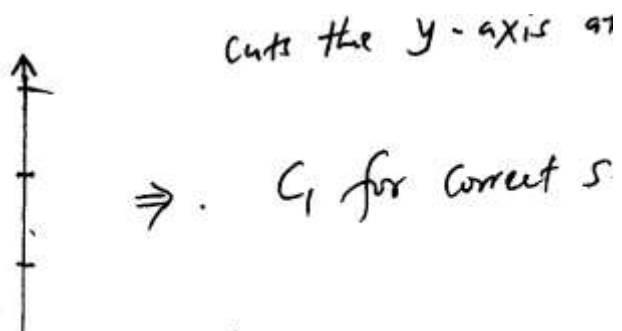 cuts the y-axis at
⇒. C₁ for correct s